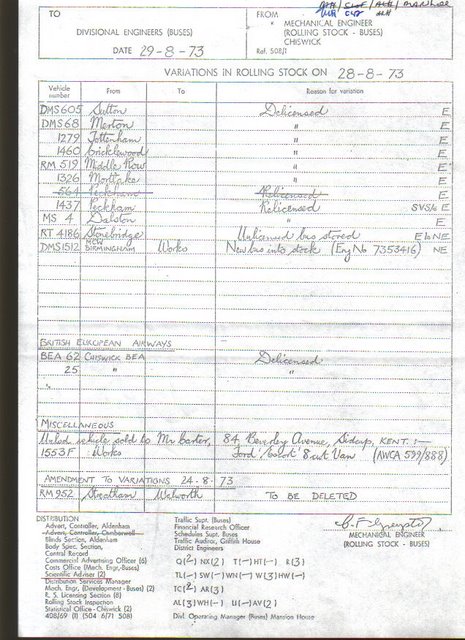 TO
DIVISIONAL ENGINEERS (BUSES)
DATE 29-8-73
FROM
MECHANICAL ENGINEER
(ROLLING STOCK - BUSES)
CHISWICK
Ref. 508/1
VARIATIONS IN ROLLING STOCK ON 28-8-73
Vehicle number From To Reason for variation
DMS 605 Sutton Delicensed E
DMS 68 Merton " E
1279 Tottenham " E
1460 Cricklewood " E
RM 519 Middle Row " E
1326 Mortlake " E
564 Peckham Relicensed
1437 Peckham Relicensed SVS/s E
MS 4 Dalston " E
RT 4186 Stonebridge Unlicensed bus stored E to NE
DMS 1512 MCW BIRMINGHAM Works New bus into stock (Eng No 7353416) NE
BRITISH EUROPEAN AIRWAYS
BEA 62 CHISWICK BEA Delicensed
25 " "
MISCELLANEOUS
vehicle sold to Mr Carter, 84, Beverley Avenue, Sidcup, KENT. :—
1553 F Works Ford 8 cwt Van (AWCA 599/888)
AMENDMENT TO VARIATIONS 24-8-73
RM 952 Streatham Walworth TO BE DELETED
DISTRIBUTION
Advert, Controller, Aldenham
Advert, Controller, Camberwell
Blinds Section, Aldenham
Body Spec. Section,
Central Record
Commercial Advertising Officer (6)
Costs Office (Mech. Eng-Buses)
Scientific Adviser (2)
Distribution Services Manager
Mech. Engr, (Development - Buses) (2)
R. S. Licensing Section (8)
Rolling Stock Inspection
Statistical Office - Chiswick (2)
408/69 (I) (504 6/71 508)
Traffic Supt. (Buses)
Financial Research Officer
Schedules Supt. Buses
Traffic Auditor, Griffith House
District Engineers
Q(2) NX(2) T(—) HT(—) R(3)
TL(—) SW(—) WN(—) W(3) HW(—)
TC(2) AR(3)
AL(3) WH(—) U(—) AV(2)
Divl. Operating Manager (Buses) Mansion House
MECHANICAL ENGINEER
(ROLLING STOCK - BUSES)